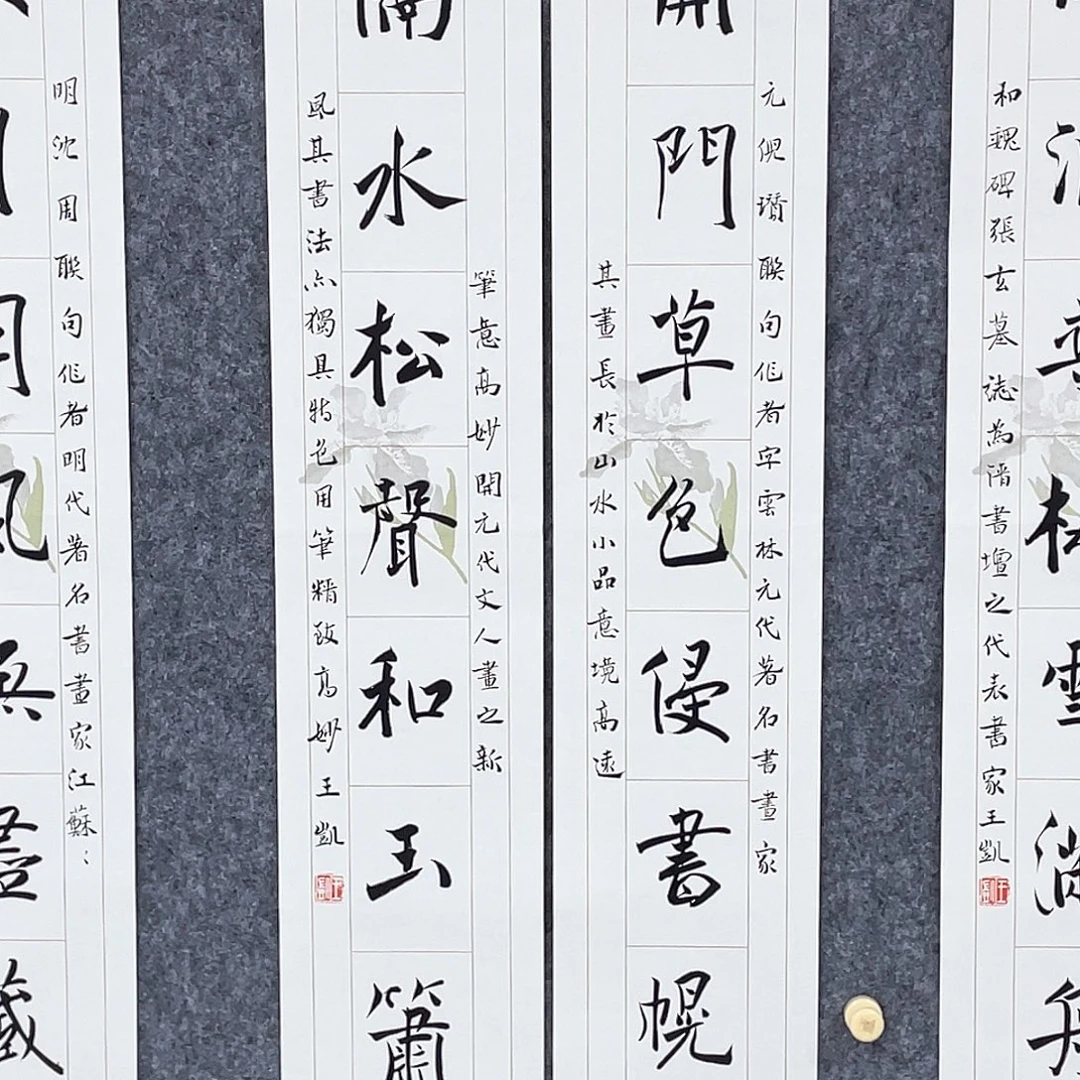 和魏碑張玄墓誌為書壇之代表書家王凱
元倪瓚聯句作者字雲林元代著名書畫家
門草色侵書幌
其畫長於山水小品意境高遠
筆意高妙開元代文人畫之新
水松聲和玉簫
風其書法亦獨具特色用筆精致高妙王凱
明沈周聯句作者明代著名書畫家江蘇
風無盡藏